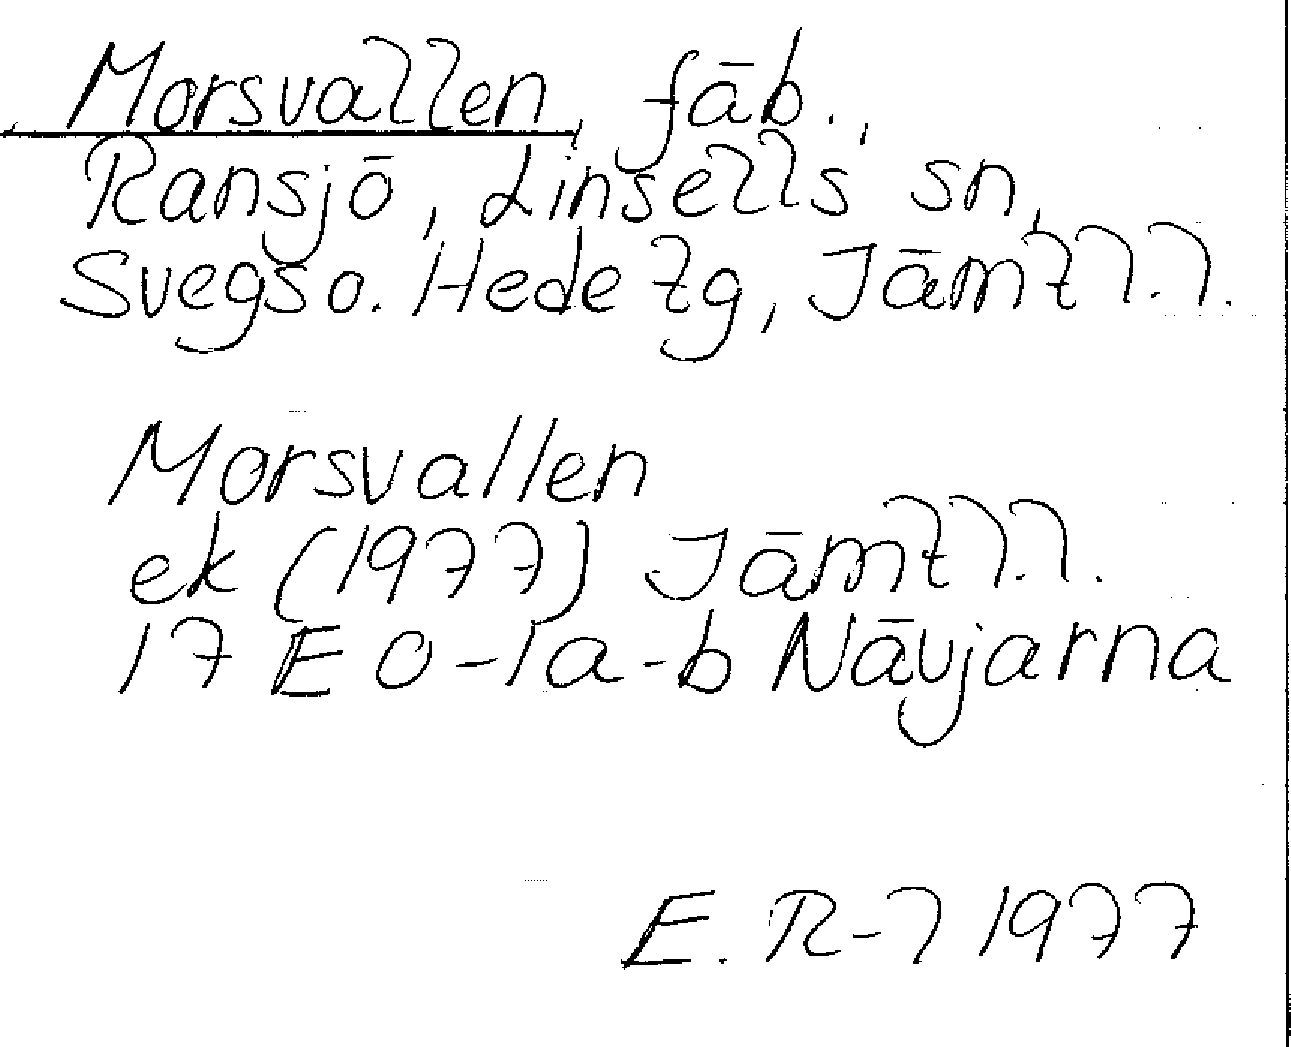 Morsvallen, fāb.,
Ransjō, Linsells sn,
Svegs o. Hede tg, Jāmtl. l.
Morsvallen
ek (1977) Jāmtl. l.
17 E 0-1a-b Nāvjarna
E. R-l 1977